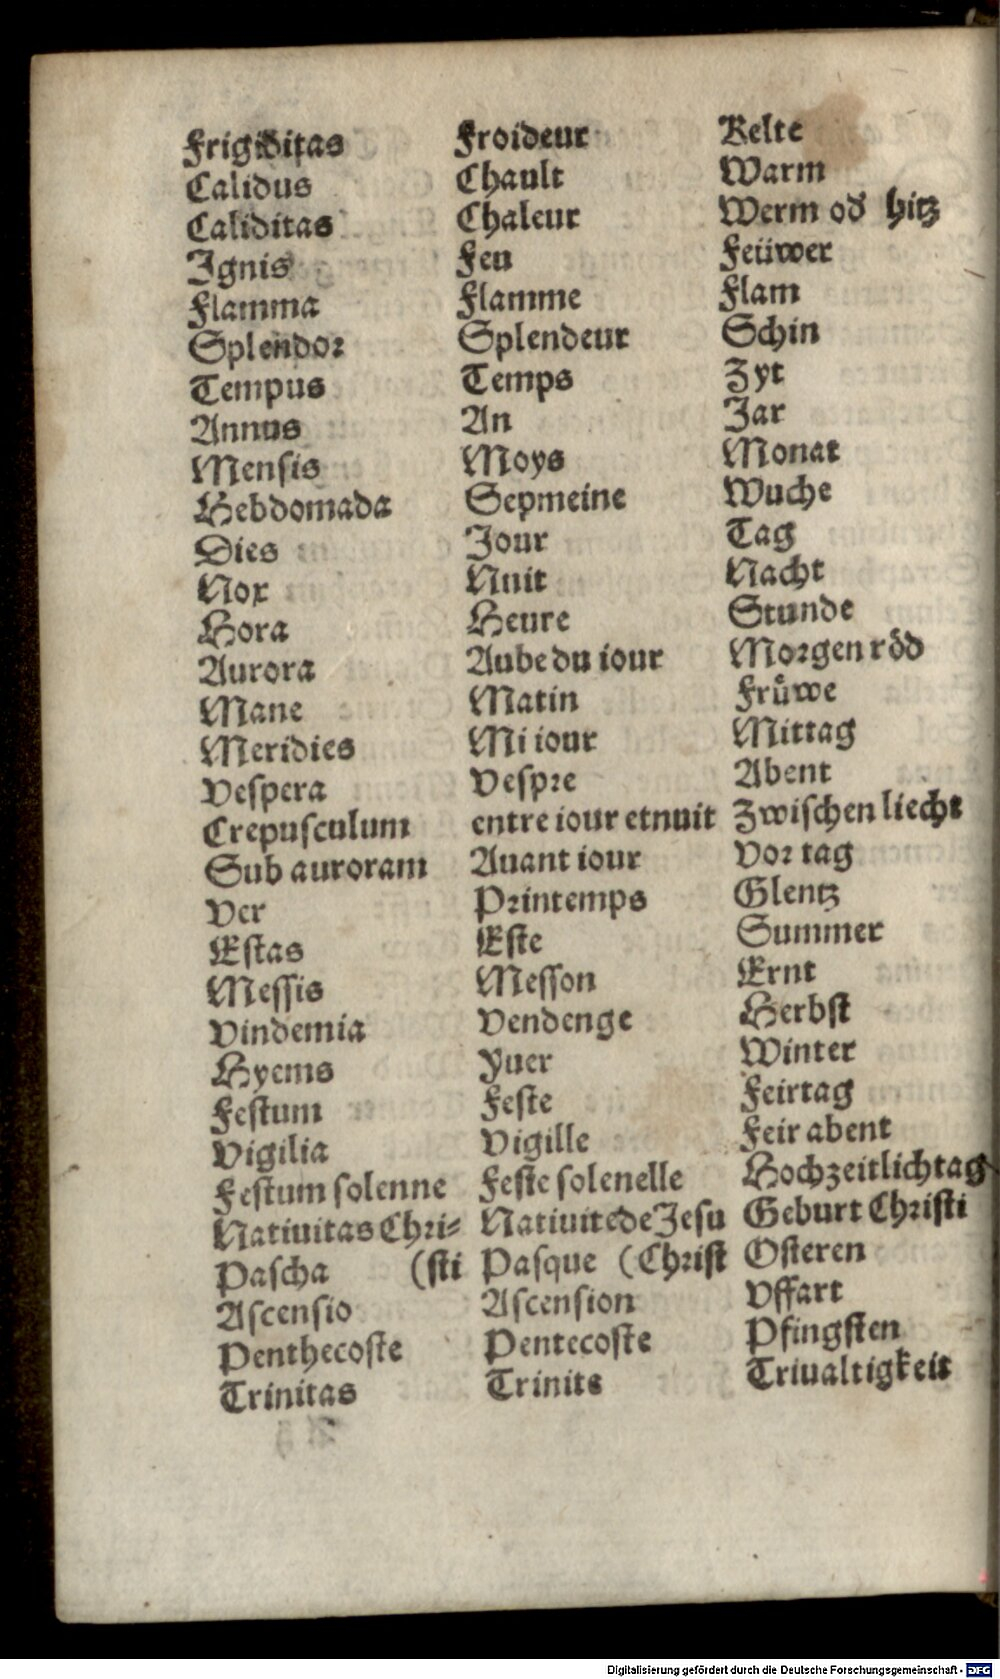 Frigiditas Froideur Kelte
Calidus Chault Warm
Caliditas Chaleur Werm od hitz
Ignis Feu Feüwer
Flamma Flamme Flam
Splendor Splendeur Schin
Tempus Temps Zyt
Annus An Jar
Mensis Moys Monat
Hebdomada Sepmeine Wuche
Dies Jour Tag
Nox Nuit Nacht
Hora Heure Stunde
Aurora Aube du iour Morgen röd
Mane Matin Früwe
Meridies Mi iour Mittag
Vespera Vespre Abent
Crepusculum entre iour et nuit Zwischen liecht
Sub auroram Auant iour Vor tag
Ver Printemps Glentz
Estas Este Summer
Messis Messon Ernt
Vindemia Vendenge Herbst
Hyems Yuer Winter
Festum Feste Feirtag
Vigilia Vigille Feir abent
Festum solenne Feste solenelle Hochzeitlich tag
Natiuitas Chri- Natiuite de Jesu Geburt Christi
Pascha (sti Pasque (Christ Osteren
Ascensio Ascension Vffart
Penthecoste Pentecoste Pfingsten
Trinitas Trinite Triualtigkeit
Digitalisierung gefördert durch die Deutsche Forschungsgemeinschaft - DFG